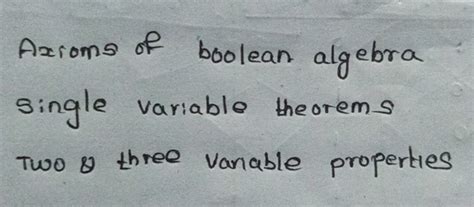 Axioms of boolean algebra
single variable theorems
Two & three variable properties